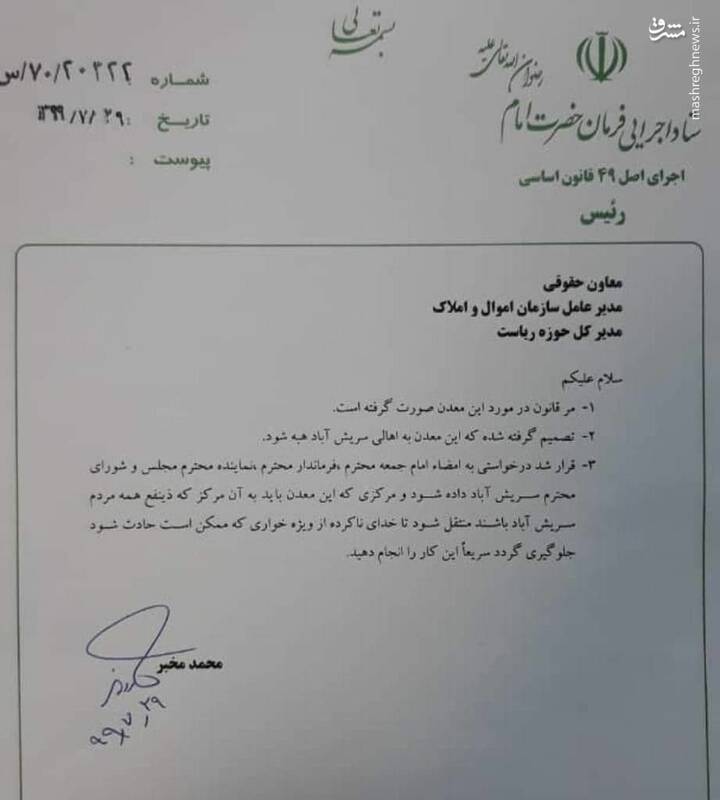 بسمه تعالی
مشرق
mashreghnews.ir
رضوان الله تعالی علیه
ستاد اجرایی فرمان حضرت امام
اجرای اصل ۴۹ قانون اساسی
رئیس
شماره ۷۰/۲۰۳۲۲/س
تاریخ : ۱۳۹۹/۷/۲۹
پیوست :
معاون حقوقی
مدیر عامل سازمان اموال و املاک
مدیر کل حوزه ریاست
سلام علیکم
۱- مر قانون در مورد این معدن صورت گرفته است.
۲- تصمیم گرفته شده که این معدن به اهالی سریش آباد هبه شود.
۳- قرار شد درخواستی به امضاء امام جمعه محترم ،فرماندار محترم ،نماینده محترم مجلس و شورای
محترم سریش آباد داده شود و مرکزی که این معدن باید به آن مرکز که ذینفع همه مردم
سریش آباد باشند منتقل شود تا خدای ناکرده از ویژه خواری که ممکن است حادث شود
جلوگیری گردد سریعاً این کار را انجام دهید.
محمد مخبر
۹۹/۷/۲۹